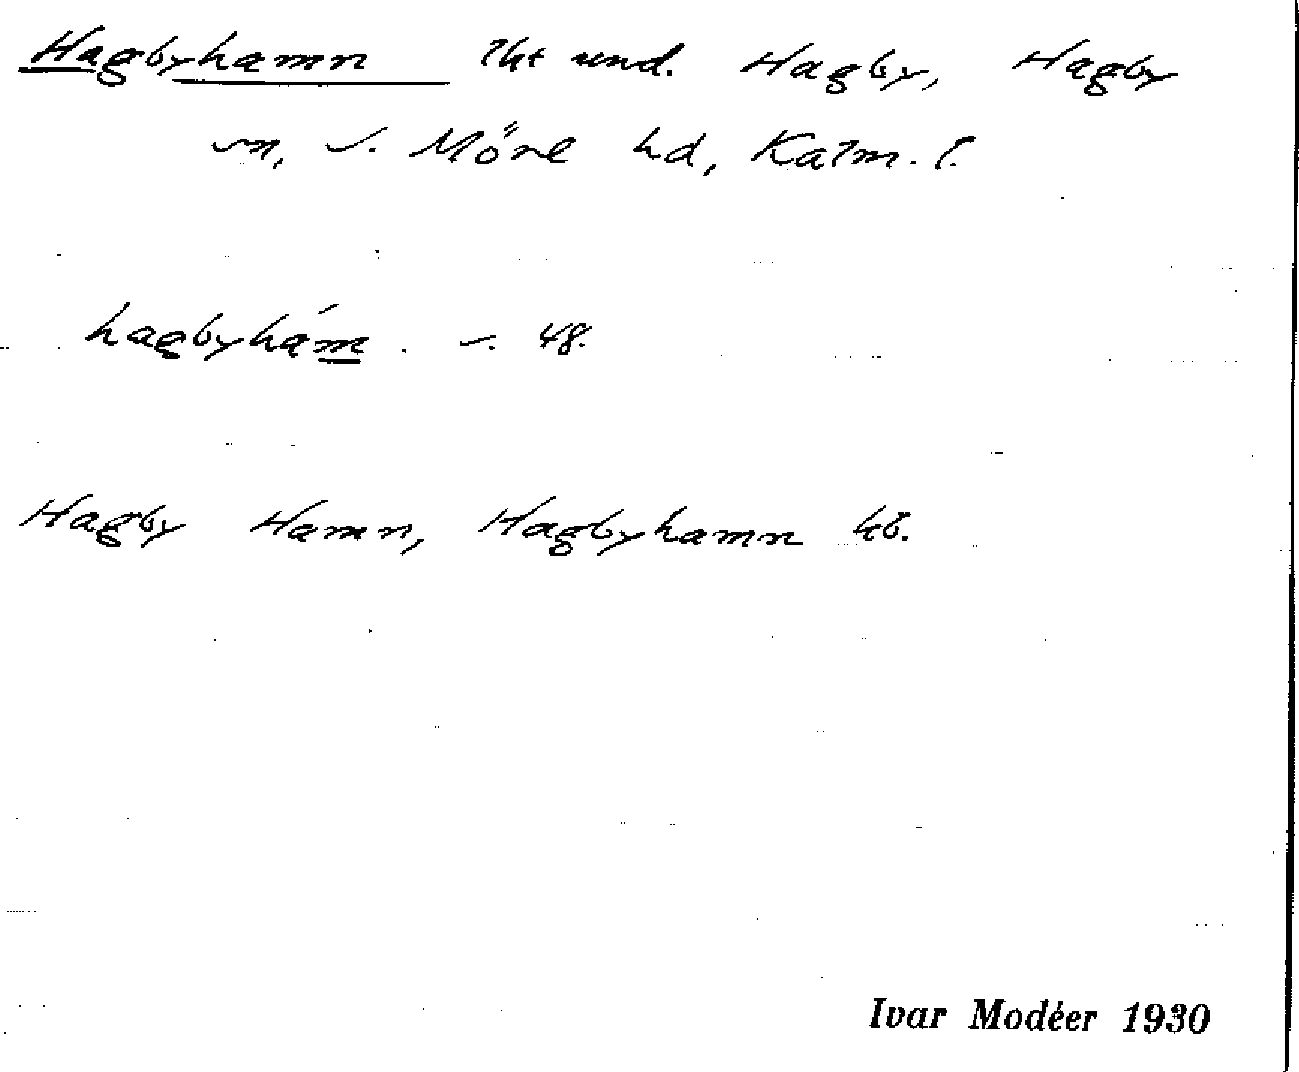 Hagbyhamn lht und. Hagby, Hagby
sn, s. Möre hd, Kalm. l.
hagbyhám. s. 48.
Hagby Hamn, Hagbyhamn kb.
Ivar Modéer 1930